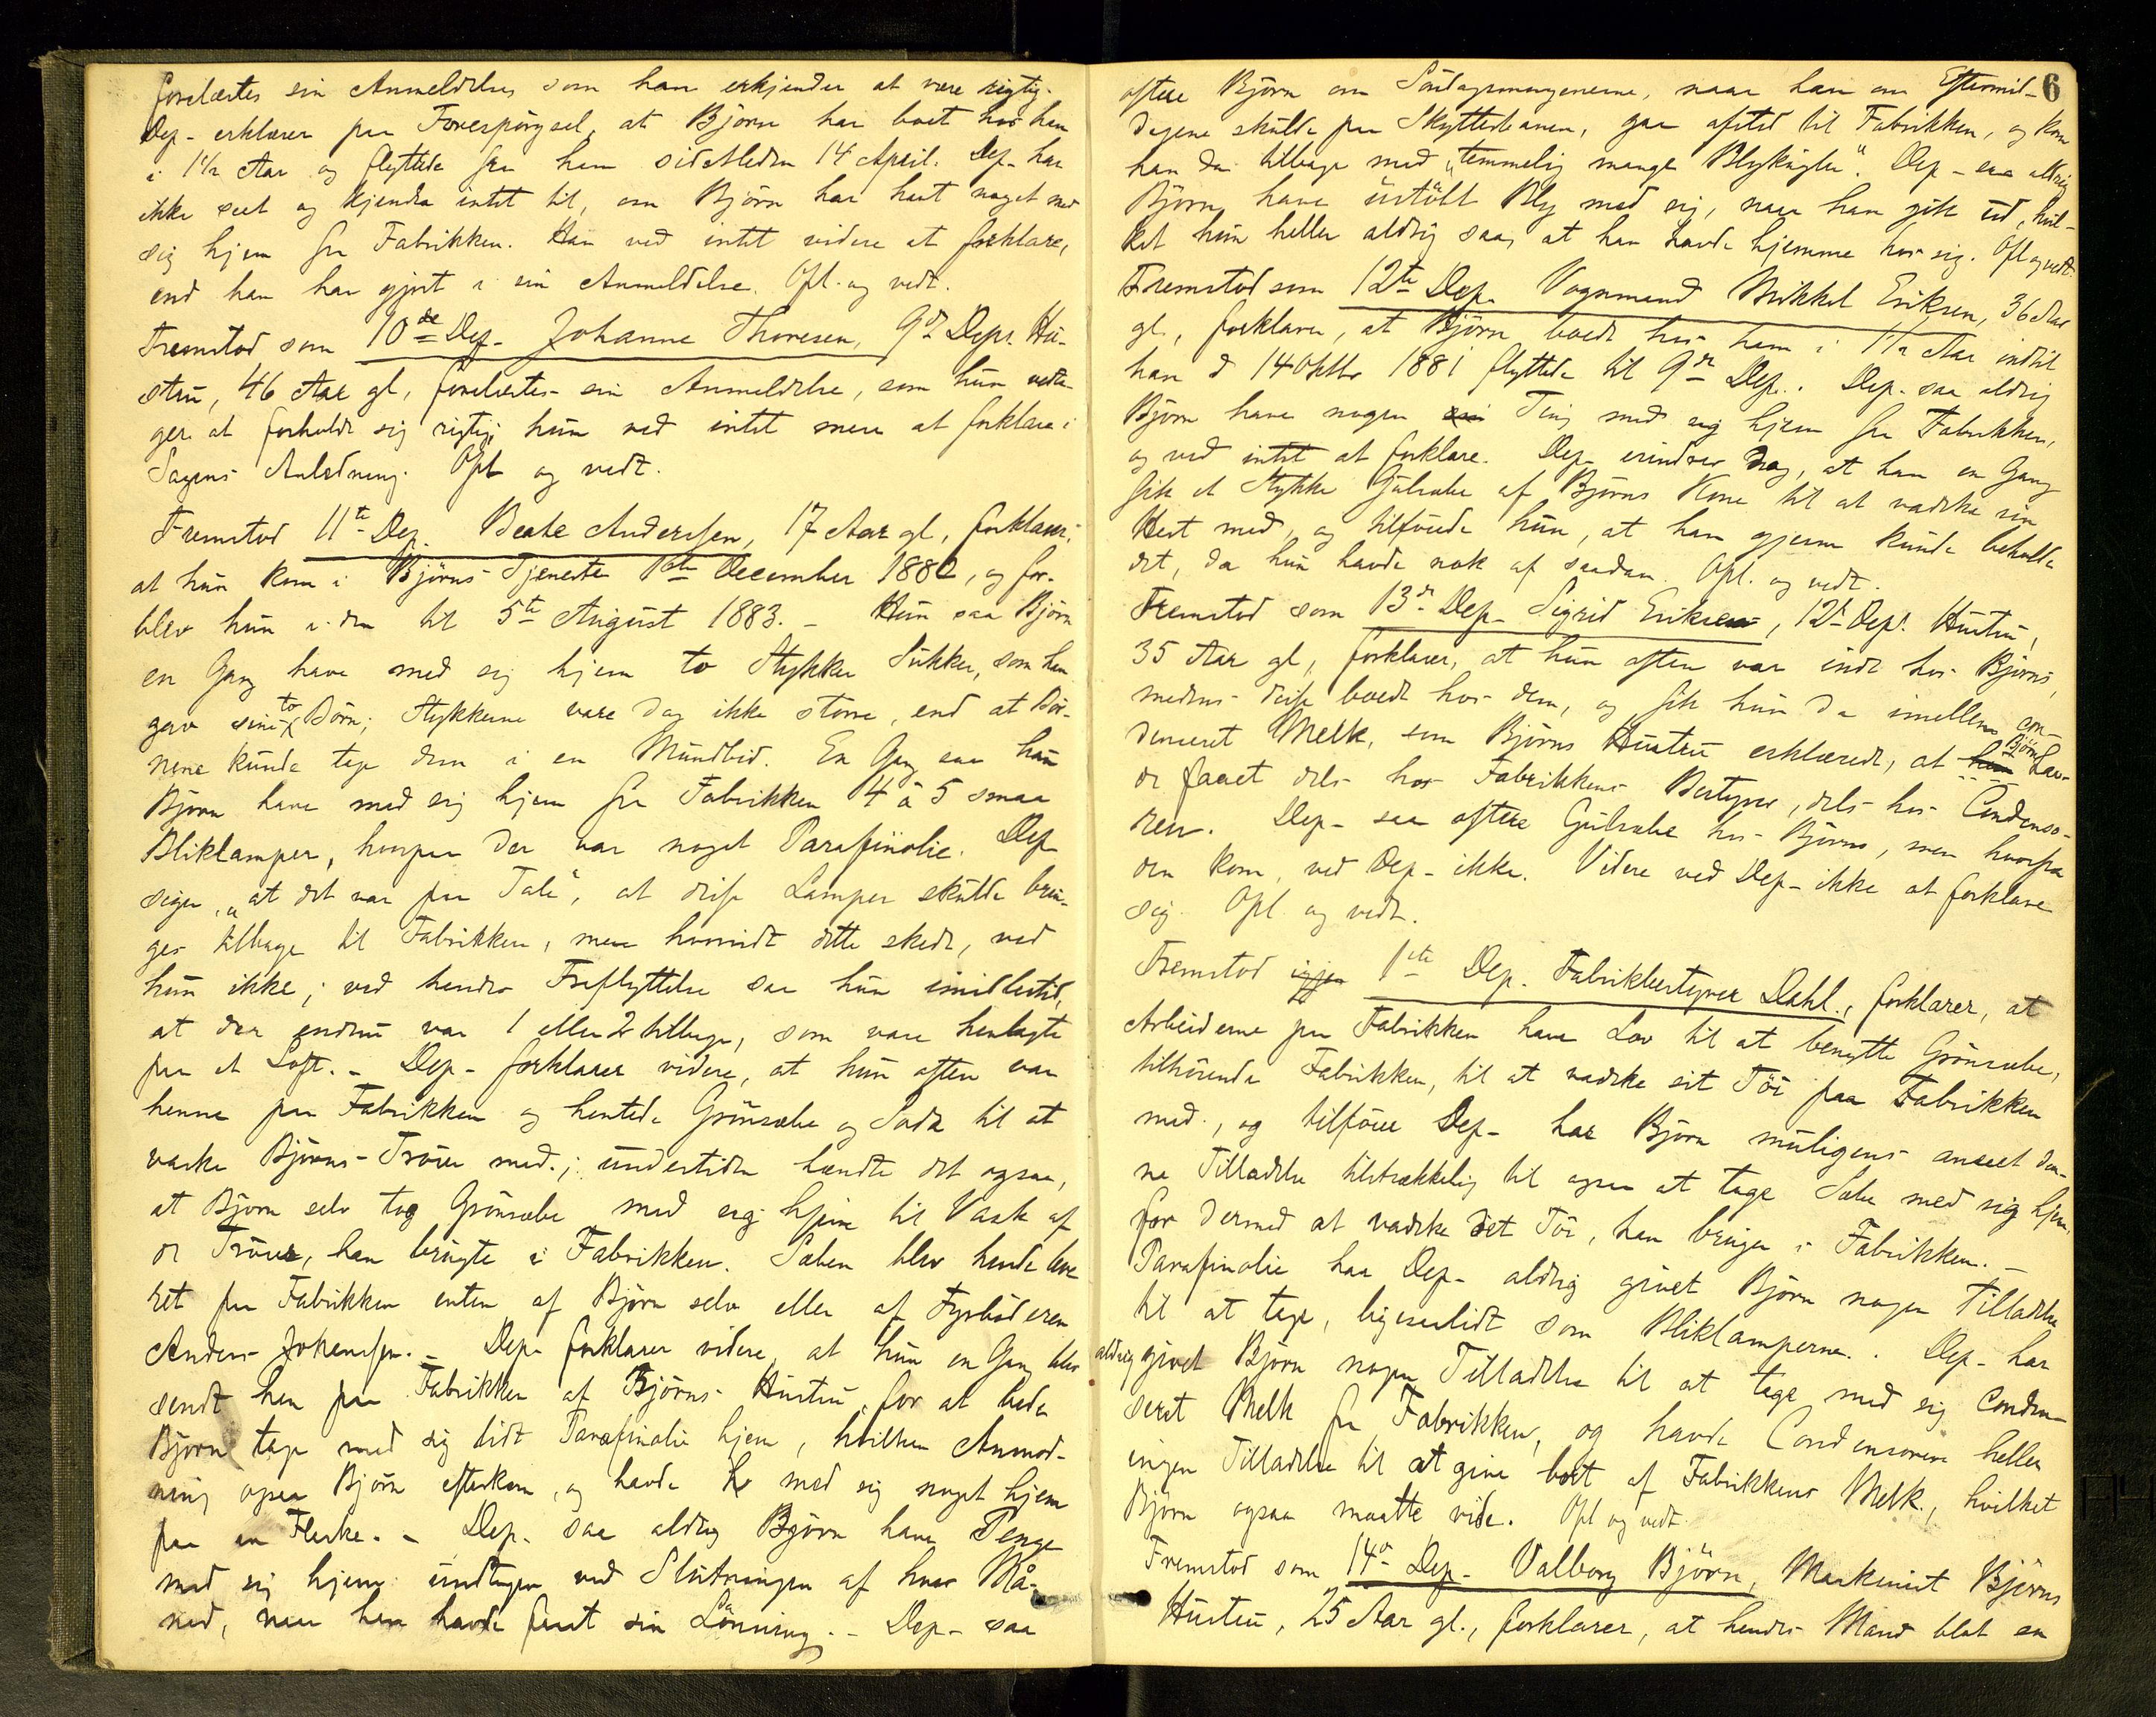 forelæstes sin Anmeldelse som han erkjender at være rigtig.
Dep- erklærer paa Forespörgsel, at Björn har boet hos ham
i 1 1/2 Aar og flyttede fra ham sidstleden 14 April. Dep- har
ikke seet og kjender intet til, om Björn har havt noget med
sig hjem fra Fabrikken. Han ved intet videre at forklare,
end han har gjort i sin Anmeldelse. Opl. og vedt.
Fremstod som 10de Dep- Johanne Thoresen, 9de Deps. Hu-
stru, 46 Aar gl, forelæstes sin Anmeldelse, som hun vedta-
ger at forholde sig rigtig; hun ved intet mere at forklare i
Sagens Anledning. Opl og vedt.
Fremstod 11te Dep. Beate Anderssen, 17 Aar gl, forklarer,
at hun kom i Björns Tjeneste 1ste December 1882, og for-
blev hun i den til 5te August 1883. - Hun saa Björn
en Gang have med sig hjem to Stykker Sukker, som han
gav sine to Börn; Stykkerne vare dog ikke större, end at Bör-
nene kunde tage dem i en Mundbid. En Gang saa hun
Björn have med sig hjem fra Fabrikken 4 à 5 smaa
Bliklamper, hvorpaa der var noget Parafinolie. Dep
siger, „at det var paa Tale", at disse Lamper skulde brin-
ges tilbage til Fabrikken, men hvorvidt dette skede, ved
hun ikke; ved hendes Fraflyttelse saa hun imidlertid,
at der endnu var 1 eller 2 tilbage, som vare henlagte
paa et Loft. - Dep- forklarer videre, at hun ofte var
henne paa Fabrikken og hentede Grönsæbe og Soda til at
vaske Björns Tröier med; undertiden hændte det ogsaa,
at Björn selv tog Grönsæbe med sig hjem til Vask af
de Tröier, han brugte i Fabrikken. Sæben blev hende leve
ret paa Fabrikken enten af Björn selv eller af Fyrböderen
Anders Johanssen. - Dep- forklarer videre, at hun en Gang blev
sendt hen paa Fabrikken af Björns Hustru, for at bede
Björn tage med sig lidt Parafinolie hjem, hvilken Anmod-
ning ogsaa Björn efterkom, og havde med sig noget hjem
paa en Flaske. - Dep. saa aldrig Björn have Penge
med sig hjem undtagen ved Slutningen af hver Må-
ned, naar han havde faaet sin Lönning. - Dep- saa
6
oftere Björn om Söndagsmorgenerne, naar han om Eftermid-
dagene skulde paa Skyttebanen, gaa afsted til Fabrikken, og kom
han da tilbage med „temmelig mange Blykugler". Dep- saa aldrig
Björn have ustöbt Bly med sig, naar han gik ud, hvil-
ket hun heller aldrig saa, at han havde hjemme hos sig. Opl og vedt.
Fremstod som 12te Dep. Vognmand Mikkel Eriksen, 36 Aar
gl, forklarer, at Björn boede hos ham i 1 1/2 Aar indtil
han d 14 Oktbr 1881 flyttede til 9de Dep.. Dep- saa aldrig
Björn have nogen Ting med sig hjem fra Fabrikken,
og ved intet at forklare. Dep- erindrer dog, at han en Gang
fik et Stykke Gulsæbe af Björns Kone til at vadske sin
Hest med, og tilföiede hun, at han gjerne kunde beholde
det, da hun havde nok af saadan. Opl. og vedt.
Fremstod som 13de Dep- Sigrid Eriksen, 12te Deps. Hustru,
35 Aar gl, forklarer, at hun ofte var inde hos Björns,
medens disse boede hos dem, og fik hun da imellem con-
denseret Melk, som Björns Hustru erklærede, at Björn hav-
de faaet dels hos Fabrikkens Bestyrer, dels hos Condenso-
ren. Dep- saa oftere Gulsæbe hos Björns, men hvorfra
den kom, ved Dep- ikke. Videre ved Dep- ikke at forklare
sig. Opl. og vedt.
Fremstod igjen 1ste Dep. Fabrikbestyrer Dahl, forklarer, at
Arbeiderne paa Fabrikken have Lov til at benytte Grönsæbe,
tilhörende Fabrikken, til at vadske sit Töi paa Fabrikken
med, og tilföier Dep- har Björn muligens anseet den-
ne Tilladelse tilstrækkelig til ogsaa at tage Sæbe med sig hjem,
for dermed at vadske det Töi, han bruger i Fabrikken. -
Parafinolie har Dep- aldrig givet Björn nogen Tilladelse
til at tage, ligesaalidt som Bliklamperne. Dep- har
aldrig givet Björn nogen Tilladelse til at tage med sig conden-
seret Melk fra Fabrikken, og havde Condensoren heller
ingen Tilladelse til at give bort af Fabrikkens Melk, hvilket
Björn ogsaa maatte vide. Opl og vedt.
Fremstod som 14de Dep- Valborg Björn, Maskinist Björns
Hustru, 25 Aar gl., forklarer, at hendes Mand blot en